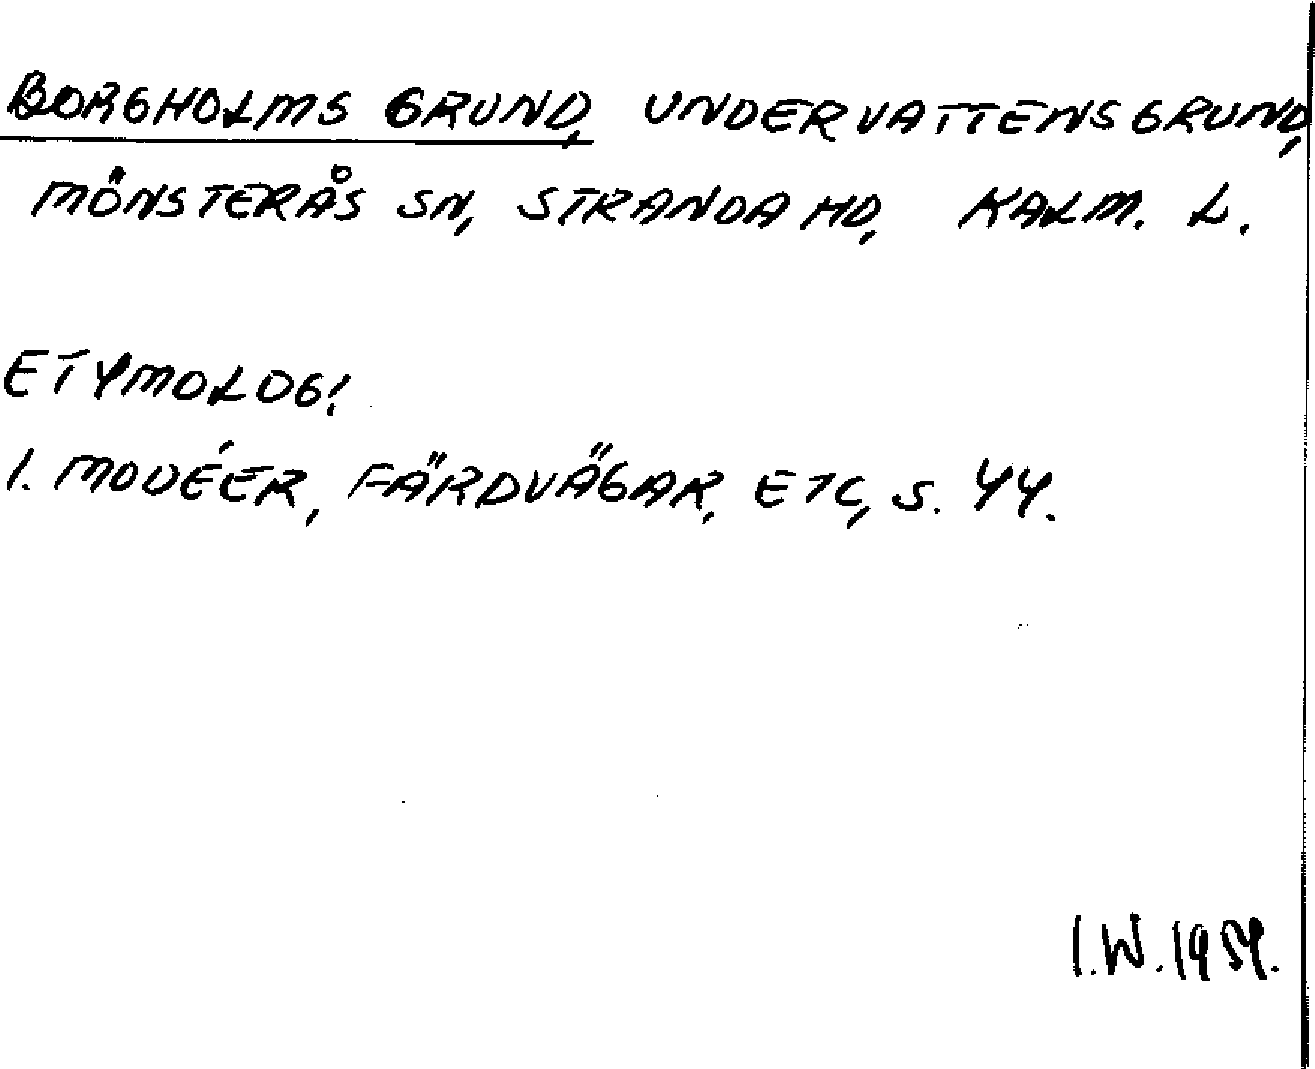 BORGHOLMS GRUND, UNDERVATTENSGRUND,
MÖNSTERÅS SN, STRANDA HD, KALM. L.
ETYMOLOGI
I. MODÉER, FÄRDVÄGAR, ETC, S. 44.
I.W.